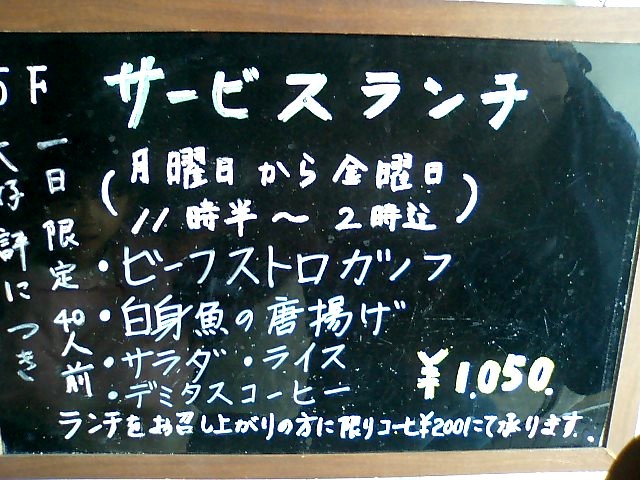 5F
サービスランチ
大好評につき
一日限定40人前
(月曜日から金曜日
11時半～2時迄)
・ビーフストロガノフ
・白身魚の唐揚げ
・サラダ ・ライス
・デミタスコーヒー
¥1,050.
ランチをお召し上がりの方に限りコーヒー¥200にて承ります.